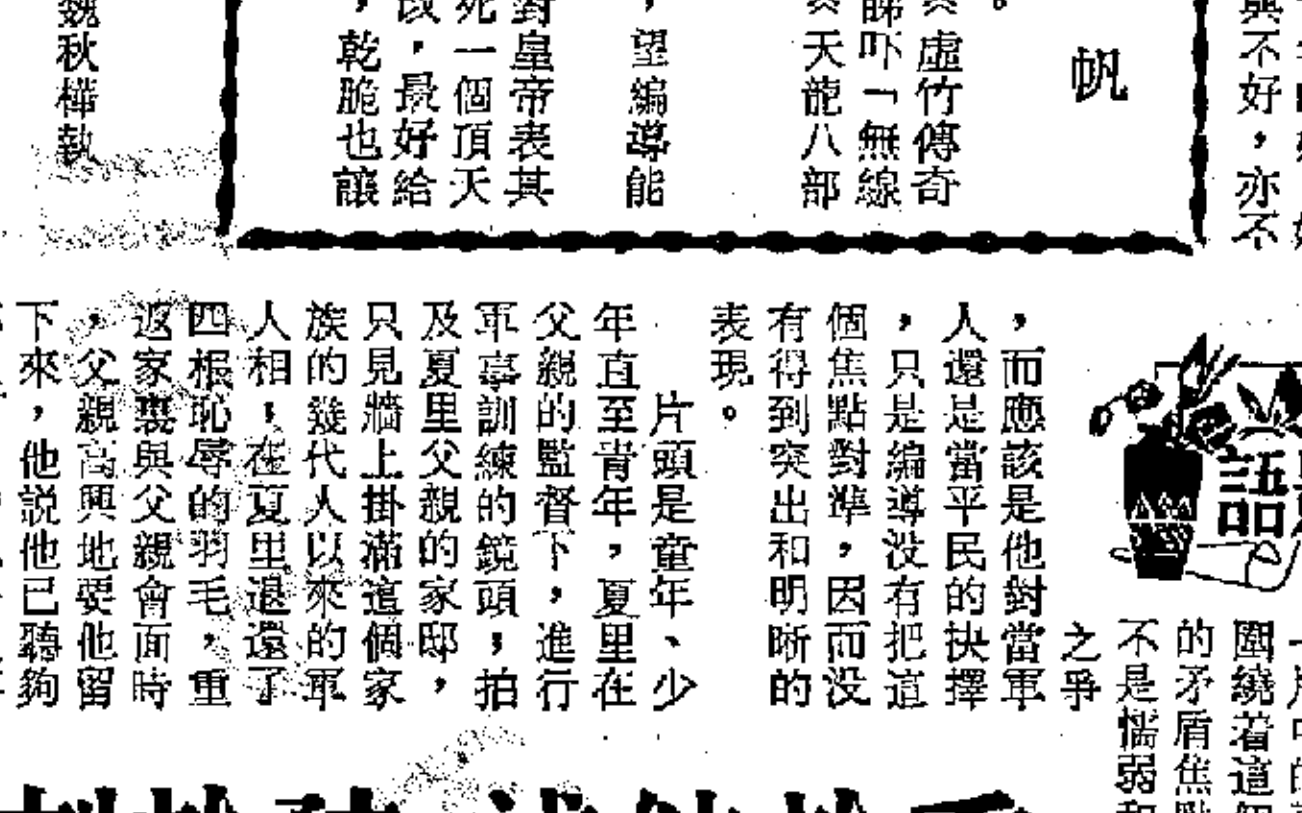 帆
。
《虛竹傳奇
睇吓「無線
《天龍八部
，望編導能
對皇帝表其
死一個頂天
改，最好給
，乾脆也讓
魏秋樺執
與不好，亦不
語
圍繞着這個
的矛盾焦點
不是懦弱和
之爭
，而應該是他對當軍
人還是當平民的抉擇
，只是編導没有把這
個焦點對準，因而没
有得到突出和明晰的
表現。
片頭是童年、少
年直至青年，夏里在
父親的監督下，進行
軍事訓練的鏡頭，拍
及夏里父親的家邸，
只見牆上掛滿這個家
族的幾代人以來的軍
人相，在夏里退還了
四根恥辱的羽毛，重
返家裏與父親會面時
，父親高興地要他留
下來，他説他已聽夠